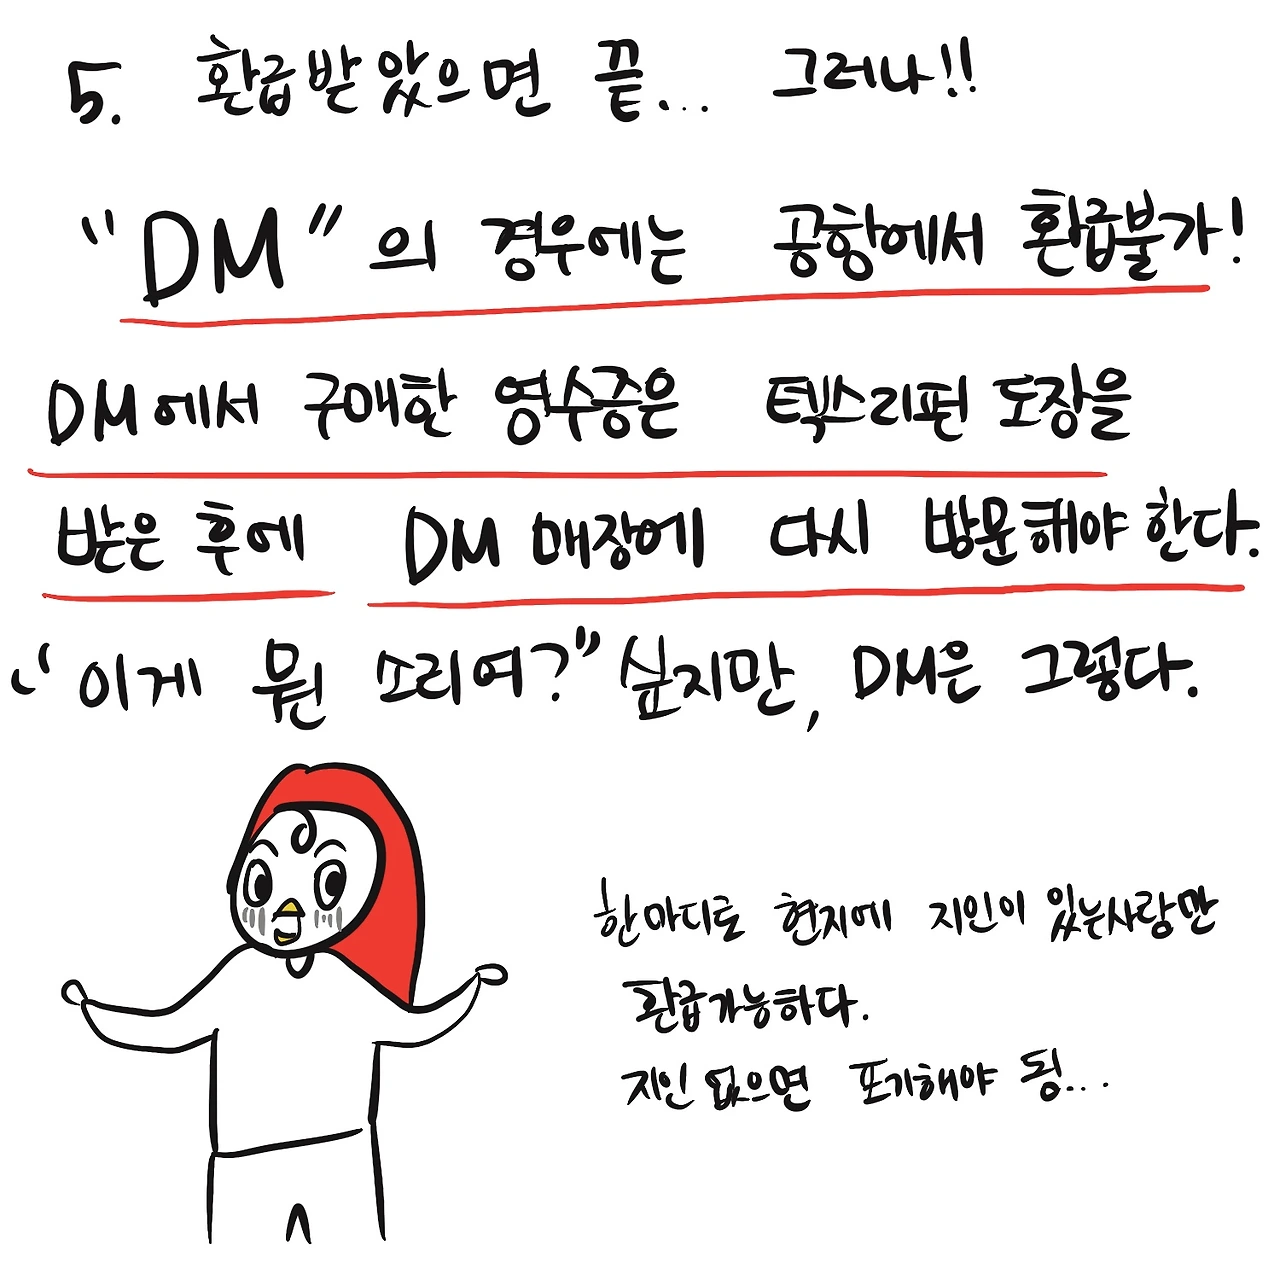 5. 환급받았으면 끝... 그러나!!
"DM"의 경우에는 공항에서 환급불가!
DM에서 구매한 영수증은 텍스리펀 도장을
받은 후에 DM 매장에 다시 방문해야한다.
"이게 뭔 소리여?" 싶지만, DM은 그렇다.
한마디로 현지에 지인이 있는사람만
환급가능하다.
지인 없으면 포기해야 됭...